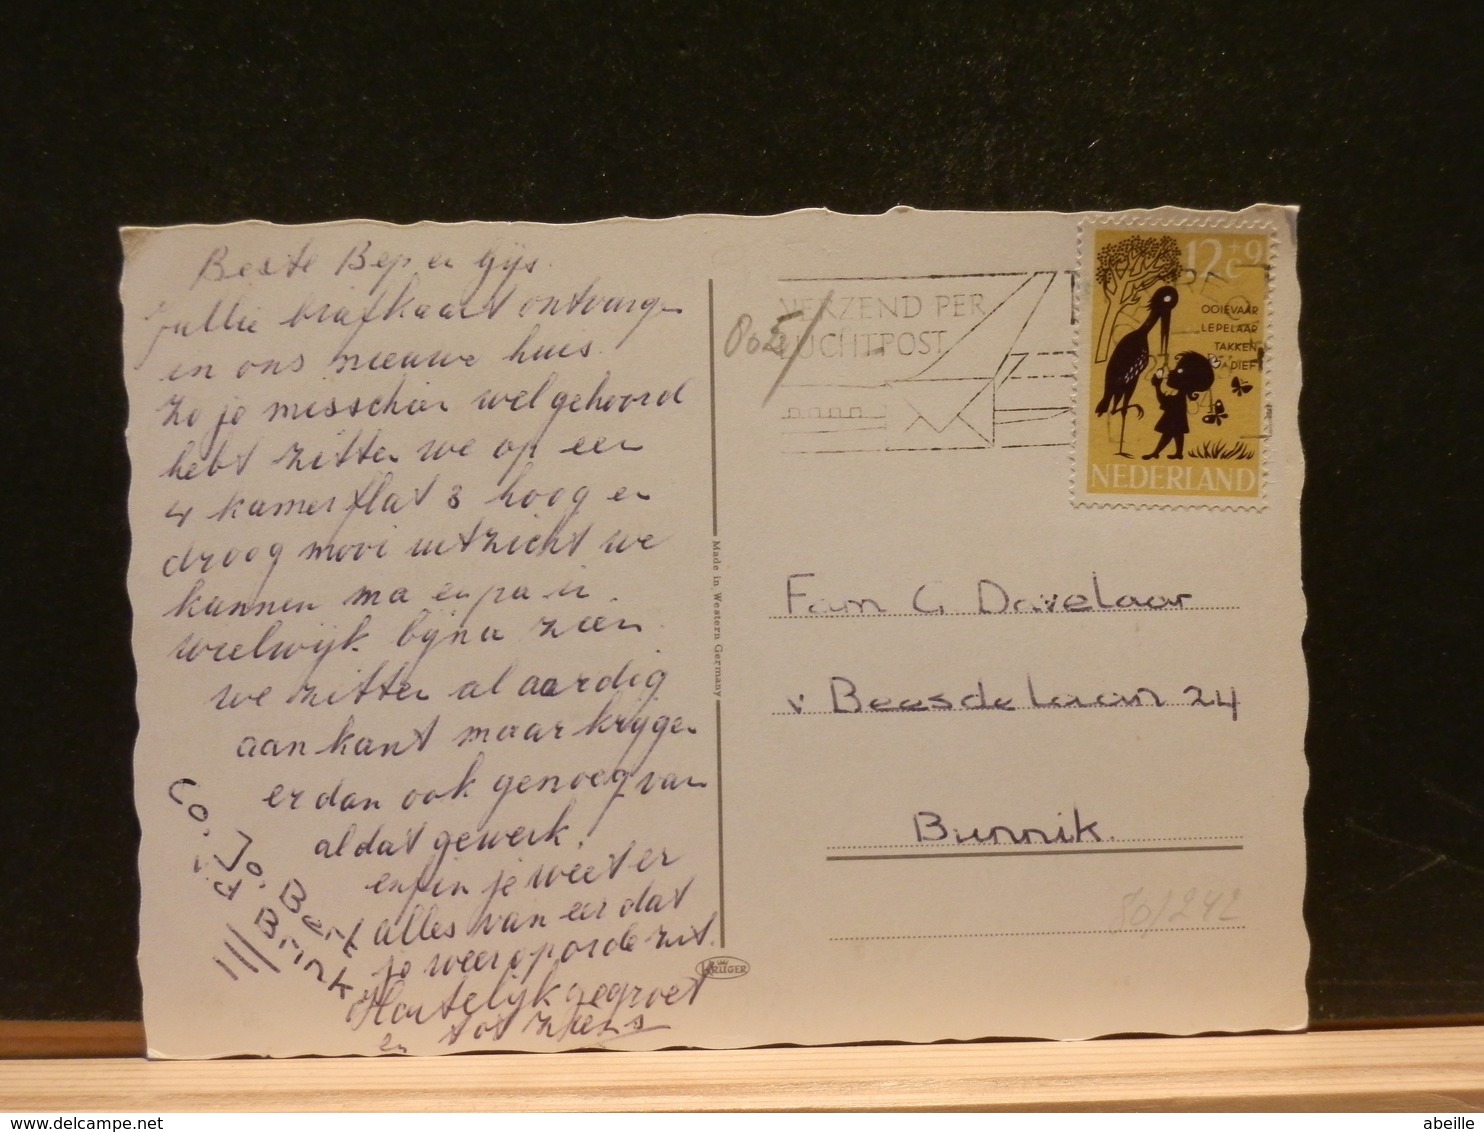 Beste Bep en Gijs.
Jullie briefkaart ontvangen
in ons nieuwe huis.
Zo je misschien wel gehoord
hebt zitten we op een
4 kamerflat 3 hoog en
droog mooi uitzicht we
kunnen ma en pa in
bijna zien.
we zitten al aardig
aan kant maar krijgen
er dan ook genoeg van
al dat gewerk.
enfin je weet er
alles van eer dat
je weer op orde zit.
Hartelijk gegroet
en tot ziens
Co. Jo. Bert
Brink
Made in Western Germany
KRÜGER
805
VERZEND PER
LUCHTPOST
12+9
c
OOIEVAAR
LEPELAAR
TAKKEN
DIEF
NEDERLAND
Fam G Davelaar
v Beesde Laan 24
Bunnik.
80/242
abeille